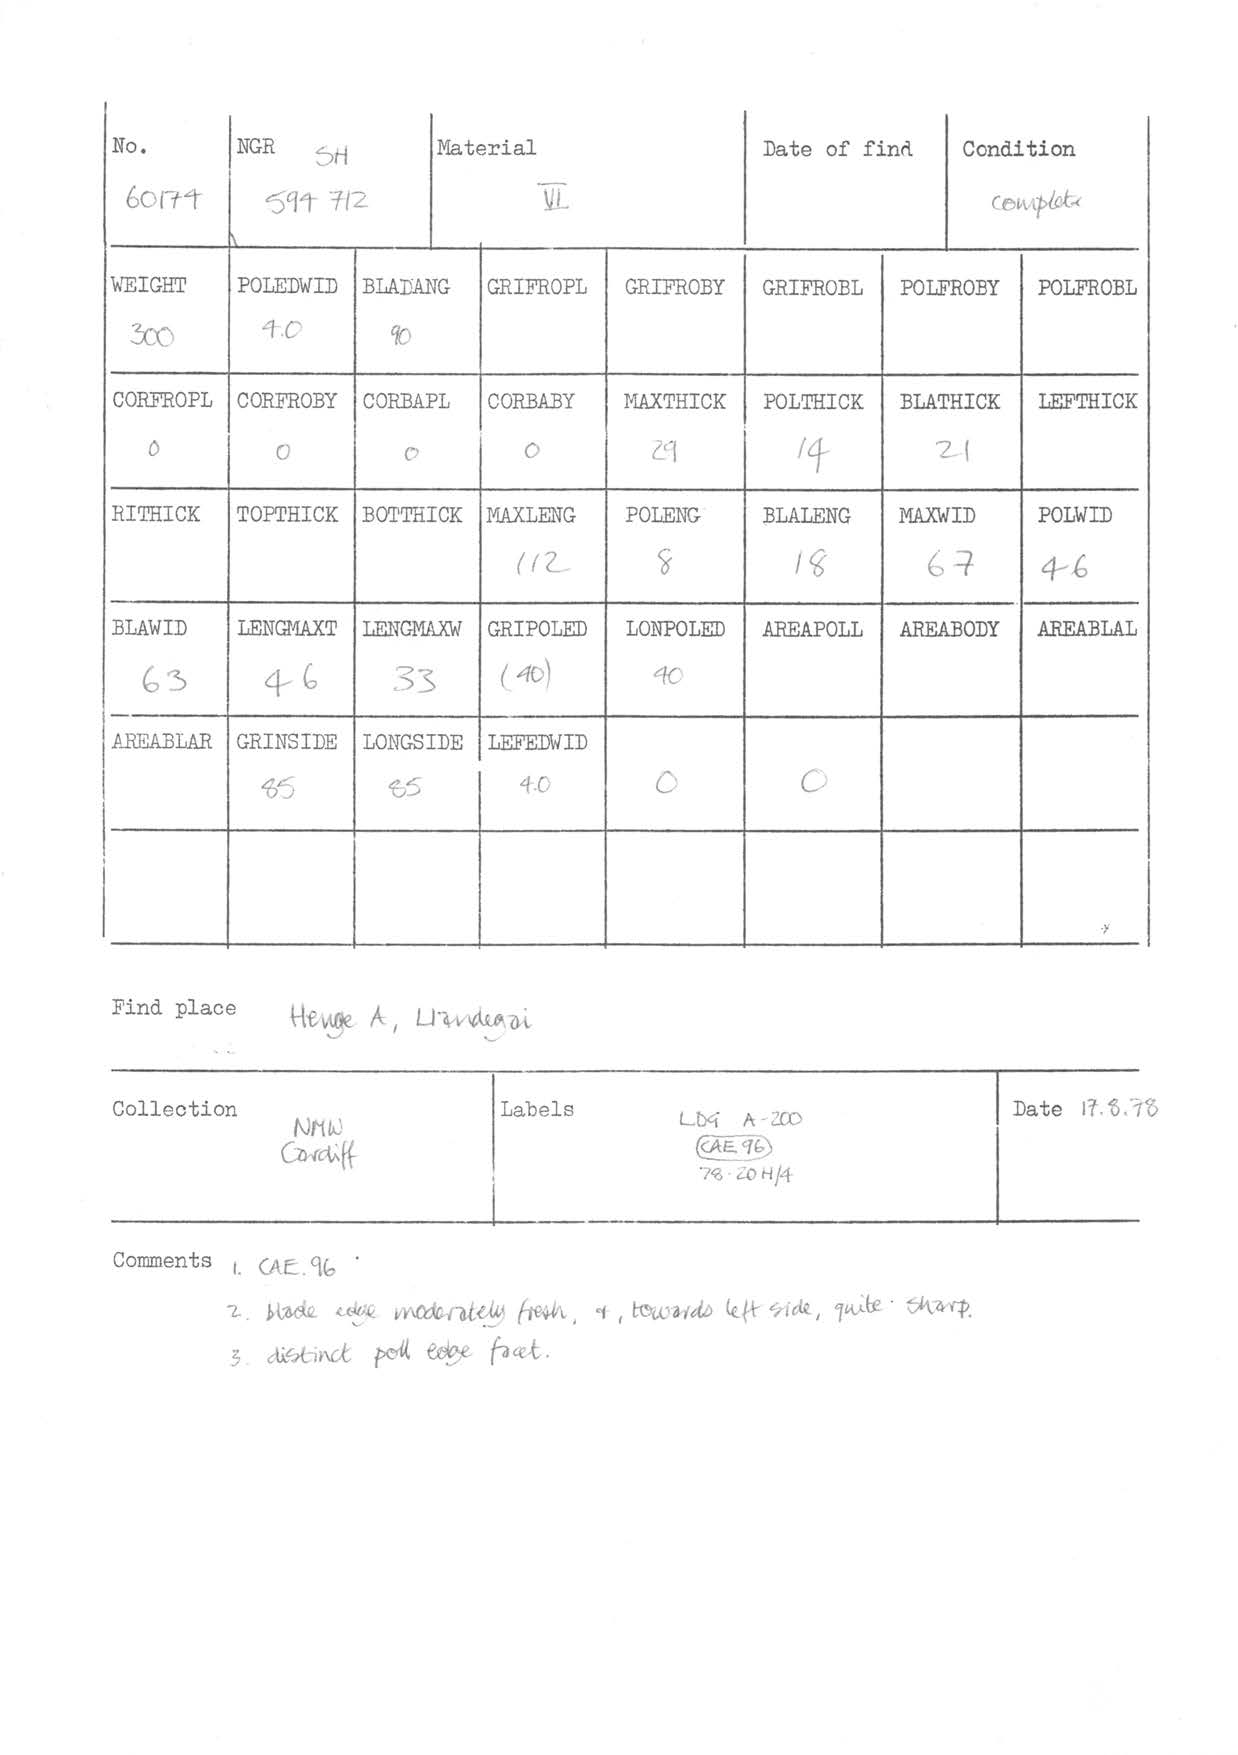 No. NGR SH Material Date of find Condition
60174 594 712 VI complete
WEIGHT POLEDWID BLADANG GRIFROPL GRIFROBY GRIFROBL POLFROBY POLFROBL
300 4.0 90
CORFROPL CORFROBY CORBAPL CORBABY MAXTHICK POLTHICK BLATHICK LEFTHICK
0 0 0 0 29 14 21
RITHICK TOPTHICK BOTTHICK MAXLENG POLENG BLALENG MAXWID POLWID
112 8 18 67 46
BLAWID LENGMAXT LENGMAXW GRIPOLED LONPOLED AREAPOLL AREABODY AREABLAL
63 46 33 (40) 40
AREABLAR GRINSIDE LONGSIDE LEFEDWID
85 85 4.0 0 0
Find place Henge A, Llandegai
Collection NMW Cardiff
Labels LDG A-200
CAE 96
78.20H/4
Date 17.8.78
Comments 1. CAE.96
2. blade edge moderately fresh, +, towards left side, quite sharp.
3. distinct poll edge facet.